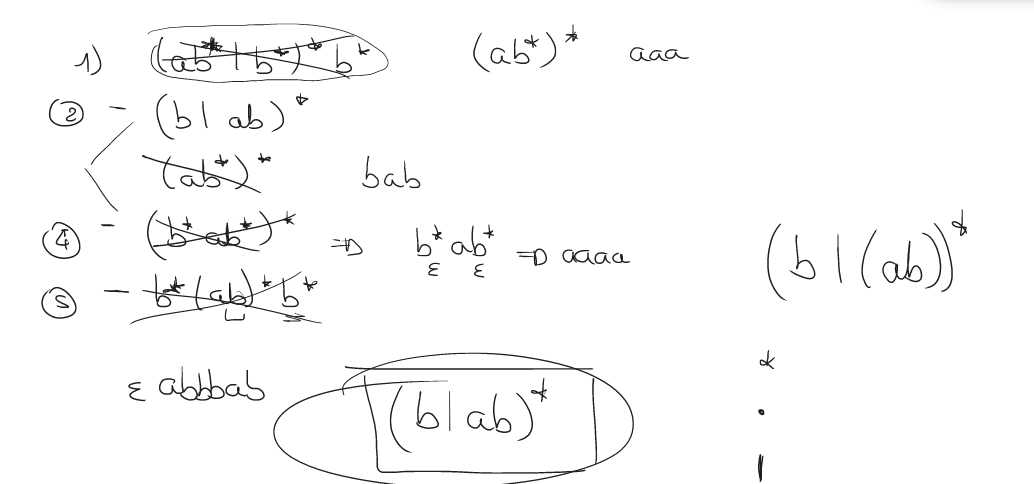 1) (ab* | b*)* b* (ab*)* aaa
② - (b | ab)*
(ab*)* bab
④ - (b* ab*)* ⇒ b* ab* ⇒ aaaa
ε ε
⑤ - b* (ab)* b*
(b | (ab))*
ε abbbab (b | ab)*
*
.
|